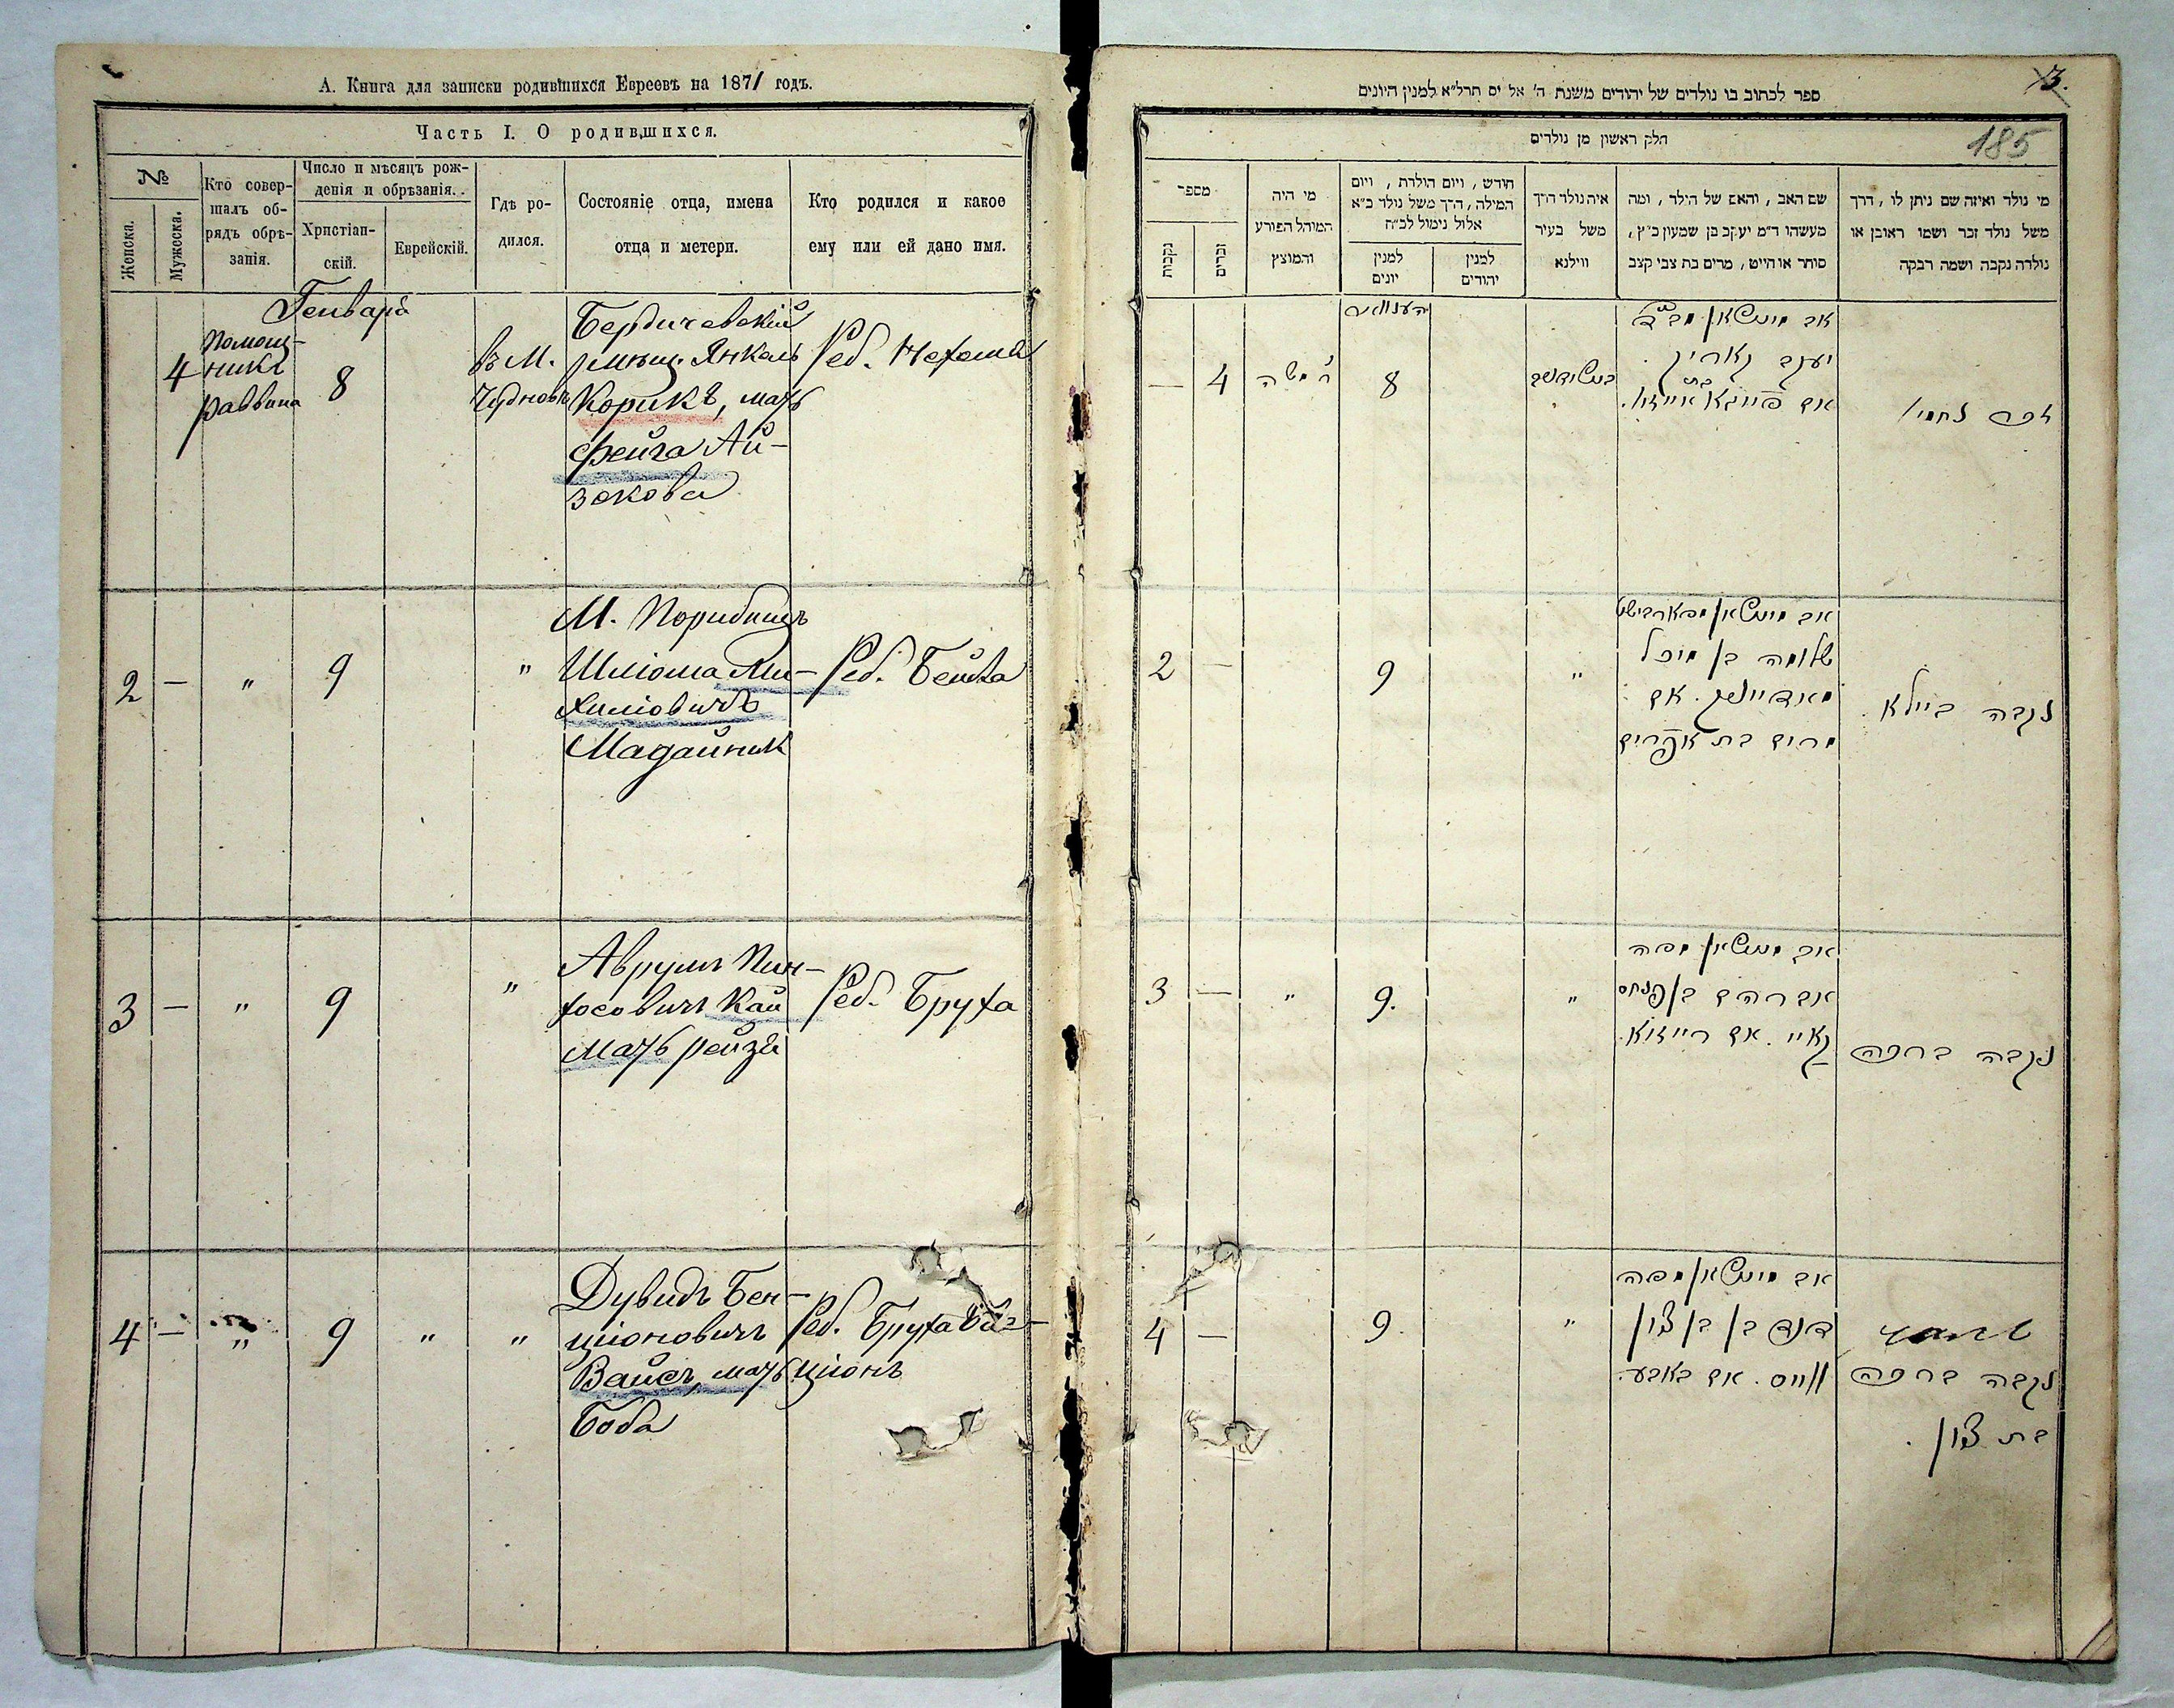 А. Книга для записки родившихся Евреевъ на 1871 годъ.
Часть I. О родившихся.
№
Женска.
Мужеска.
Кто совер-
шалъ об-
рядъ обрѣ-
занія.
Число и мѣсяцъ рож-
денія и обрѣзанія.
Христіан-
скій.
Еврейскій.
Гдѣ ро-
дился.
Состояніе отца, имена
отца и метери.
Кто родился и какое
ему или ей дано имя.
Генваря
4
Помощ-
никъ
раввина
8
въ М.
Чудновѣ
Бердичевскій
мѣщ. Янкель
Корикъ, мать
Фейга Ай-
зокова
Реб. Нехоміа
2
—
"
9
"
М.
Шліома Ми-
хиліовичъ
Мадайник
Реб. Бейла
3
—
"
9
"
Аврумъ Пин-
хосовичъ Кац
мать рейзя
Реб. Бруха
4
—
"
9
"
"
Дувидъ Бен-
ціоновичъ
Вайсъ, мать
Боба
Реб. Бруха Бас-
ціонъ
3.
185
ספר לכתוב בו נולדים של יהודים משנת ה' אל יס תרל"א למנין היונים
חלק ראשון מן נולדים
מספר
נקבות
זכרים
מי היה
המוהל הפורע
והמוצץ
חודש, ויום הולדת, ויום
המילה, הדך משל נולד כ"א
אלול נימול לכ"ח
למנין
יונים
למנין
יהודים
איה נולד הדך
משל בעיר
ווילנא
שם האב, והאם של הילד, ומה
מעשהו ד"מ יעקב בן שמעון כ"ץ,
סוחר או הייט, מרים בת צבי קצב
מי נולד ואיזה שם ניתן לו, דרך
משל נולד זכר ושמו ראובן או
נולדה נקבה ושמה רבקה
—
4
ר' משה
8
יעקב קאריק.
אם פייגא אייזיק.
זכר נחמי'
2
—
9
"
שלומה בן מיכל
מאדייניק. אם
מרים בת אפרים
נקבה ביילא.
3
—
"
9.
"
אב מטשאן מפה
אברהם בן פנחס
קאץ. אם רייזא.
נקבה ברכה
4
—
9.
"
אב מטשאן מפה
דוד בן בן ציון
ווייס. אם באבע.
נקבה ברכה
בת ציון.